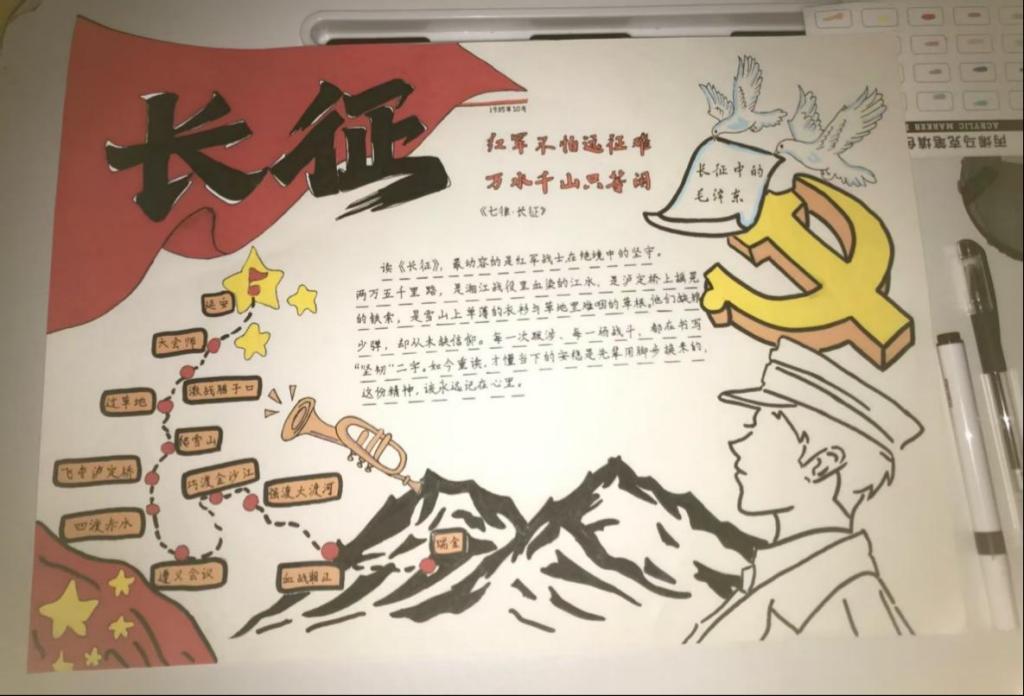 长征
1935年10月
红军不怕远征难
万水千山只等闲
《七律·长征》
长征中的
毛泽东
读《长征》，最动容的是红军战士在绝境中的坚守。
两万五千里路，是湘江战役里血染的江水，是泸定桥上摇晃
的铁索，是雪山上单薄的衣衫与草地里难咽的草根，他们缺粮
少弹，却从未缺信仰。每一次跋涉，每一场战斗，都在书写
“坚韧”二字。如今重读，才懂当下的安稳是先辈用脚步换来的，
这份精神，该永远记在心里。
延安
大会师
激战腊子口
过草地
爬雪山
飞夺泸定桥
巧渡金沙江
强渡大渡河
四渡赤水
遵义会议
血战湘江
瑞金
丙烯马克笔填色
ACRYLIC MARKER